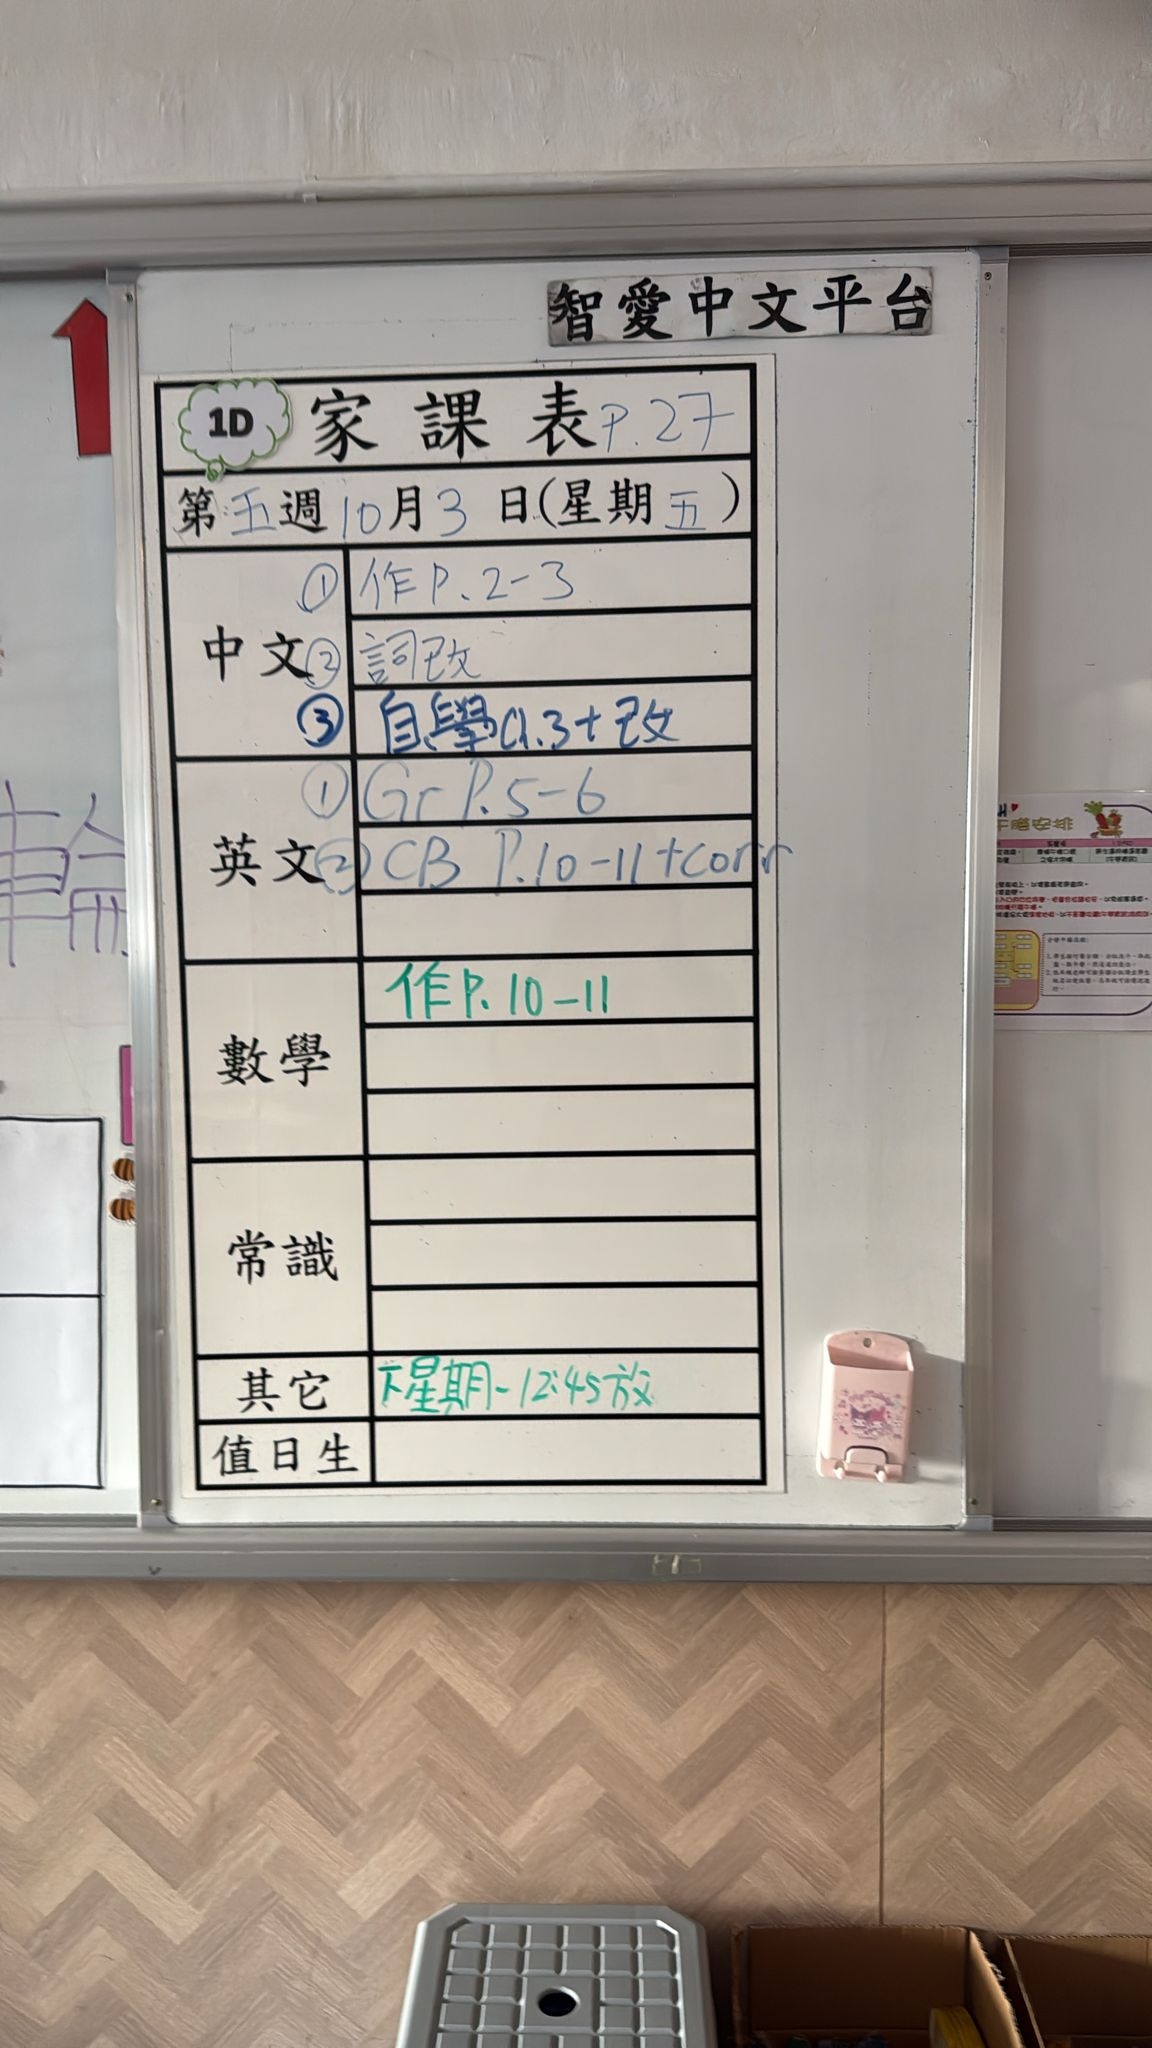 智愛中文平台
1D 家課表 P.27
第五週10月3日(星期五)
中文
① 作P.2-3
② 詞改
③ 自學a.3+改
英文
① Gr P.5-6
② CB P.10-11+corr
數學
作P.10-11
常識
其它
下星期-12:45放
值日生
輪
午膳安排